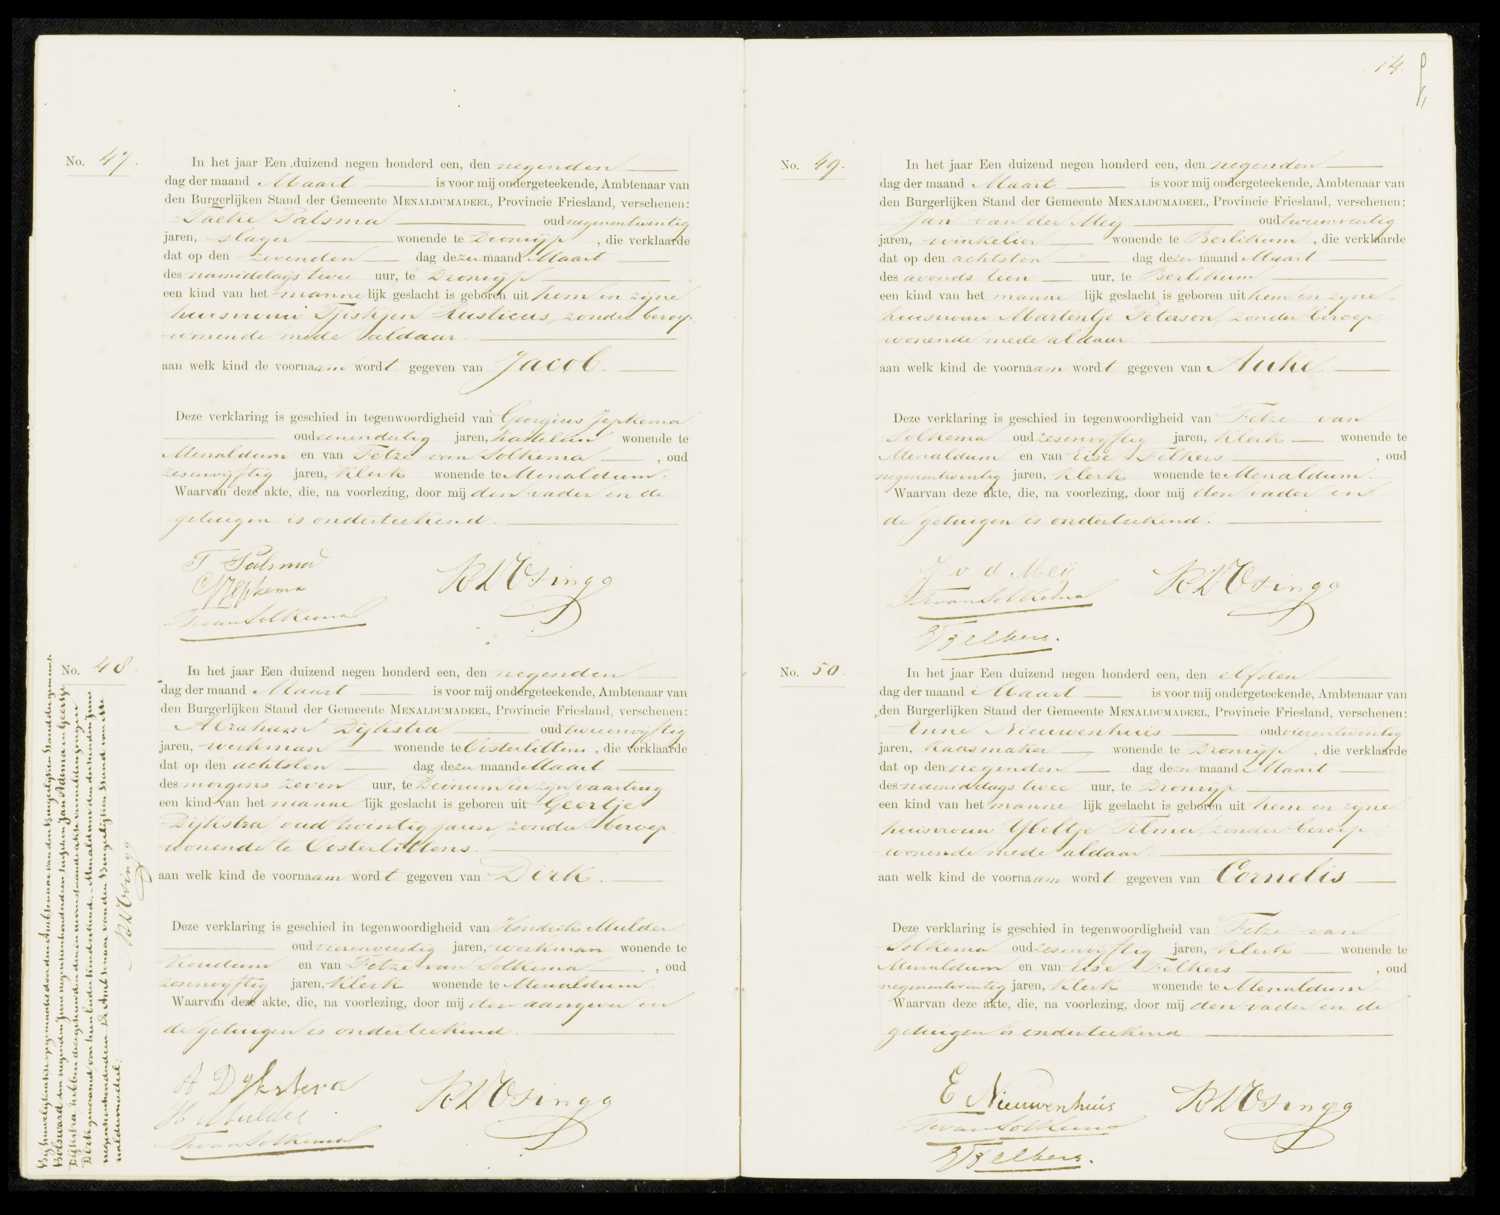 14.
No. 47.
In het jaar Een duizend negen honderd een, den negenden
dag der maand Maart is voor mij ondergeteekende, Ambtenaar van
den Burgerlijken Stand der Gemeente MENALDUMADEEL, Provincie Friesland, verschenen:
Taeke Palsma oud negenentwintig
jaren, slager wonende te Dronrijp, die verklaarde
dat op den zevenden dag dezer maand Maart
des namiddags twee uur, te Dronrijp
een kind van het mannelijk geslacht is geboren uit hem en zijne
huisvrouw Tjiskjen Rusticus, zonder beroep,
wonende mede aldaar.
aan welk kind de voornaam wordt gegeven van Jacob.
Deze verklaring is geschied in tegenwoordigheid van Georgius Jepkema
oud eenendertig jaren, kastelein wonende te
Menaldum en van Fetze van Solkema, oud
zesenvijftig jaren, klerk wonende te Menaldum.
Waarvan deze akte, die, na voorlezing, door mij den vader en de
getuigen is onderteekend.
T Palsma
G Jepkema
F van Solkema
RL Osinga
No. 48.
In het jaar Een duizend negen honderd een, den negenden
dag der maand Maart is voor mij ondergeteekende, Ambtenaar van
den Burgerlijken Stand der Gemeente MENALDUMADEEL, Provincie Friesland, verschenen:
Abraham Dijkstra oud tweeenvijftig
jaren, werkman wonende te Oosterlittens, die verklaarde
dat op den achtsten dag dezer maand Maart
des morgens zeven uur, te Deinum in zijn vaartuig
een kind van het mannelijk geslacht is geboren uit Geertje
Dijkstra oud twintig jaren, zonder beroep
wonende te Oosterlittens.
aan welk kind de voornaam wordt gegeven van Dirk.
Deze verklaring is geschied in tegenwoordigheid van Hendrik Mulder
oud jaren, werkman wonende te
Koudum en van Fetze van Solkema, oud
zesenvijftig jaren, klerk wonende te Menaldum.
Waarvan deze akte, die, na voorlezing, door mij den aangever en
de getuigen is onderteekend.
A Dijkstra
H Mulder
F van Solkema
RL Osinga
Bij huwelijksakte opgemaakt door den Ambtenaar van den Burgerlijken Stand der gemeente
Bolsward den negenden Juni negentienhonderd een huwden Jan Adema en Geertje
Dijkstra hebben dezelve het in nevenstaande akte vermelde
Dirk genaamd voor hun beider kind erkend. Menaldum den Juni
negentienhonderdeen. De Ambtenaar van den Burgerlijken Stand van Me-
naldumadeel.
RL Osinga
No. 49.
In het jaar Een duizend negen honderd een, den negenden
dag der maand Maart is voor mij ondergeteekende, Ambtenaar van
den Burgerlijken Stand der Gemeente MENALDUMADEEL, Provincie Friesland, verschenen:
Jan van der Meij oud
jaren, winkelier wonende te Berlikum, die verklaarde
dat op den achtsten dag dezer maand Maart
des avonds tien uur, te Berlikum
een kind van het mannelijk geslacht is geboren uit hem en zijne
huisvrouw Martentje Peterson, zonder beroep,
wonende mede aldaar
aan welk kind de voornaam wordt gegeven van Auke
Deze verklaring is geschied in tegenwoordigheid van Fetze van
Solkema oud zesenvijftig jaren, klerk wonende te
Menaldum en van Eise Felkers, oud
negenentwintig jaren, klerk wonende te Menaldum.
Waarvan deze akte, die, na voorlezing, door mij den vader en
de getuigen is onderteekend.
J v d Meij
F van Solkema
E Felkers.
RL Osinga
No. 50.
In het jaar Een duizend negen honderd een, den elfden
dag der maand Maart is voor mij ondergeteekende, Ambtenaar van
den Burgerlijken Stand der Gemeente MENALDUMADEEL, Provincie Friesland, verschenen:
Anne Nieuwenhuis oud vierentwintig
jaren, kaasmaker wonende te Dronrijp, die verklaarde
dat op den negenden dag dezer maand Maart
des namiddags twee uur, te Dronrijp
een kind van het mannelijk geslacht is geboren uit hem en zijne
huisvrouw IJbeltje Fetma, zonder beroep,
wonende mede aldaar.
aan welk kind de voornaam wordt gegeven van Cornelis
Deze verklaring is geschied in tegenwoordigheid van Fetze van
Solkema oud zesenvijftig jaren, klerk wonende te
Menaldum en van Eise Felkers, oud
negenentwintig jaren, klerk wonende te Menaldum.
Waarvan deze akte, die, na voorlezing, door mij den vader en de
getuigen is onderteekend
E Nieuwenhuis
F van Solkema
E Felkers.
RL Osinga